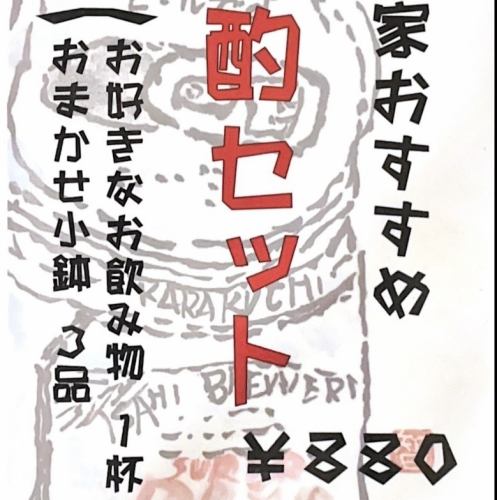 家おすすめ
酌セット
お好きなお飲み物 1杯
おまかせ小鉢 3品
¥880
KARAKUCHI
ASAHI BREWERI